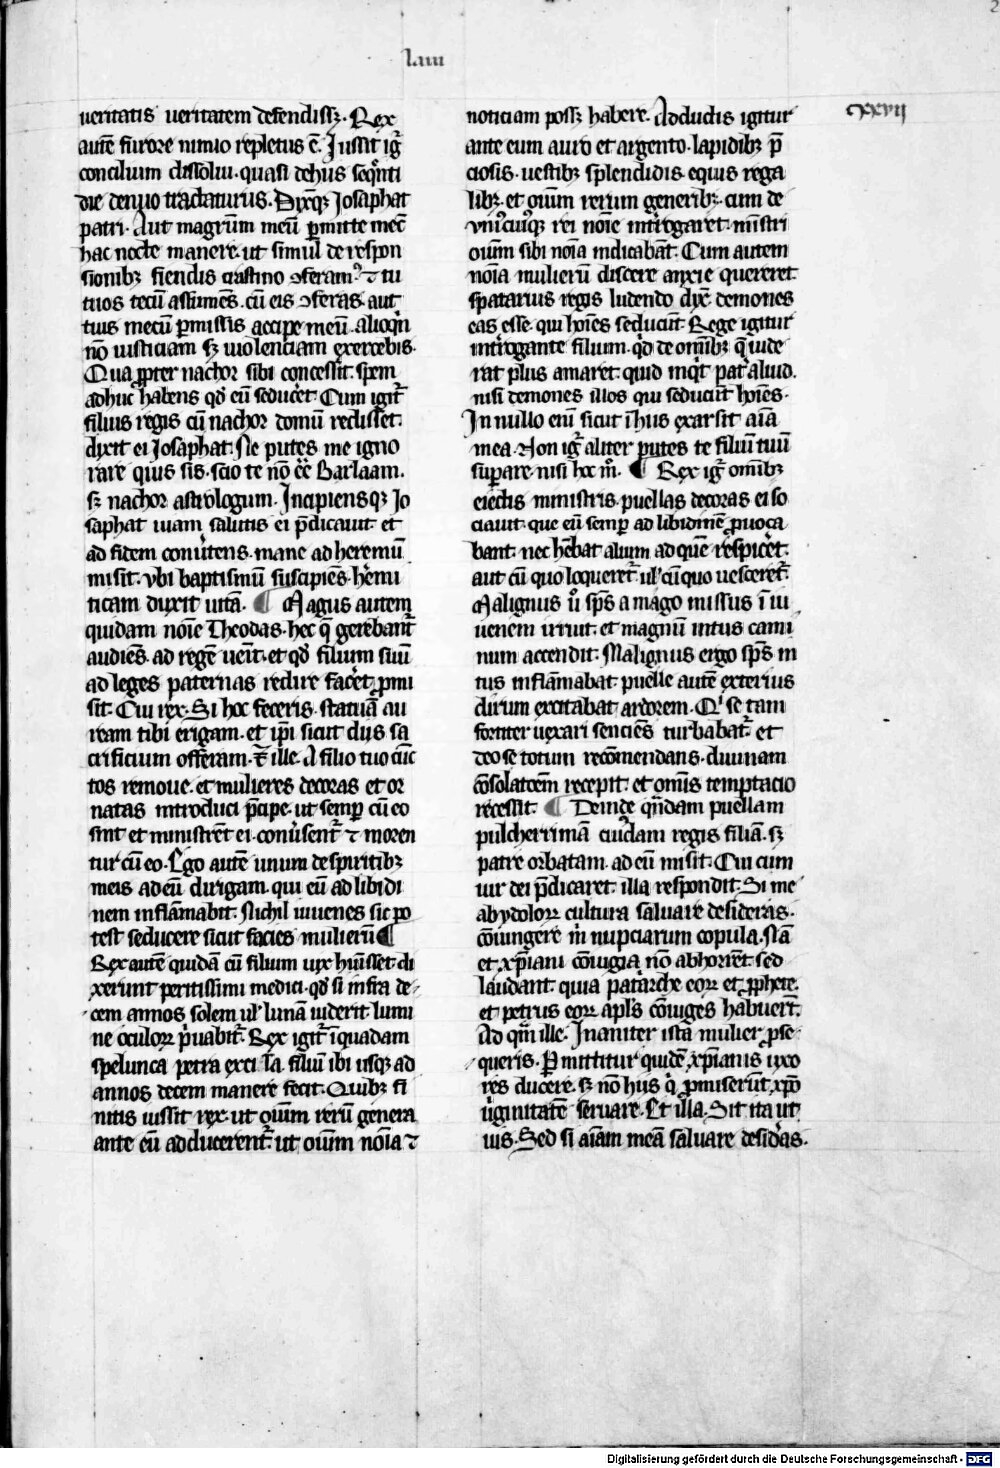 lxiii
cxxvij
ueritatis ueritatem defendissꝫ. Rex
autē furore nimio repletus ē. Jussit igͬ
concilium dissolui. quasi de hijs seq̄nti
die denuo tractaturus. Dixitqꝫ Josaphat
patri. Aut magrūm meū ꝑmitte mecū
hac nocte manere. ut simul de respon
sionibꝫ fiendis crastino ↄferamꝰ. ⁊ tu
tuos tecū assumēs. cū eis ↄferas. aut
tuis mecū ꝑmissis accipe meū. alioqͥn
nō iusticiam sꝫ uiolenciam exercebis.
Quaꝓpter nachor sibi concessit. spem
adhuc habens qd eū seduceret. Cum igitͬ
filius regis cū nachor domū redisset.
dixit ei Josaphat. Ne putes me igno
rare quis sis. scio te nō eē Barlaam.
sꝫ nachor astrologum. Incipiensqꝫ Jo
saphat uiam salutis ei p̄dicauit. et
ad fidem conuertens. mane ad heremū
misit. vbi baptismū suscipiēs. heremi
ticam duxit uitā. ¶ Magus autem
quidam noīe Theodas. hec q̄ gerebantͬ
audiēs. ad regē uēit. et qd filium suū
ad leges paternas redire facet ꝓmi
sit. Cui rex. Si hoc feceris. statuā au
ream tibi erigam. et ip̄i sicut dijs sa
crificium offeram. Et ille. A filio tuo cūc
tos remoue. et mulieres decoras et or
natas introduci p̄cipe. ut semꝑ cū eo
sint et ministrēt ei. conuersentͬ ⁊ moren
tur cū eo. Ego autē unum de spiritibꝫ
meis ad eū dirigam. qui eū ad libidi
nem inflāmabit. Nichil iuuenes sic po
test seducere sicut facies mulierū ¶
Rex autē quidā cū filium uix habuisset. di
xerunt peritissimi medici. qd si infra de
cem annos solem ul' lunā uiderit. lumi
ne oculoꝝ p̄uabitͬ. Rex igitͬ ī quadam
spelunca petra excisa. filiū ibi usqꝫ ad
annos decem manere fecit. Quibꝫ fi
nitis iussit rex. ut oīum rerū genera
ante eū adducerentͬ. ut oīum nōia ⁊
noticiam possꝫ habere. Adductis igitur
ante eum auro et argento. lapidibꝫ p̄
ciosis. uestibꝫ splendidis. equis rega
libꝫ. et oīum rerum generibꝫ. cum de
vniꝰcuiꝰqꝫ rei noīe interrogaret. ministri
oīum sibi noīa indicabāt. Cum autem
noīa mulierū discere anxie quereret.
spatarius regis ludendo dixͭ. demones
eas esse. qui hoīes seducūt. Rege igitur
interrogante filium. qͥd de omībꝫ q̄ uide
rat plus amaret. quid inqͥt pater aliud.
nisi demones illos qui seducūt hoīes.
In nullo enī sicut in hijs exarsit aīa
mea. Non igͬ aliter putes te filiū tuū
suꝑare. nisi hoc mͦ. ¶ Rex igͬ omībꝫ
eiectis ministris. puellas decoras ei so
ciauit. que eū semꝑ ad libidinē ꝓuoca
bant. nec hēbat alium ad quē respiceret.
aut cū quo loqueretͬ. ul' cū quo uesceretͬ.
Malignus ū sp̄s a mago missus ī iu
uenem irruit. et magnū intus cami
num accendit. Malignus ergo sp̄s in
tus inflāmabat. puelle autē exterius
dirum excitabat ardorem. Qͥ se tam
fortiter uexari senciēs turbabatͬ. et
deo se totum recōmendans. diuinam
cōsolatōem recepit. et omīs temptacio
recessit. ¶ Deinde quādam puellam
pulcherrimā cuiusdam regis filiā. sꝫ
patre orbatam. ad eū misit. Cui cum
uir dei p̄dicaret. illa respondit. Si me
ab ydoloꝝ cultura saluare desideras.
cōiungere m nupciarum copula. Nā
et xp̄iani cōiugia nō abhorrēt. sed
laudant. quia patͥarche eoꝝ et ꝓphete.
et petrus eoꝝ apl's cōiuges habuertͭ.
Ad qm̄ ille. Inaniter ista mulier ꝓse
queris. Permittitur quidē xp̄ianis uxo
res ducere. sꝫ nō hijs qͥ ꝓmiserūt xp̄o
uͥginitatē seruare. Et illa. Sit ita ut
uis. Sed si aīam meā saluare desideras.
Digitalisierung gefördert durch die Deutsche Forschungsgemeinschaft - DFG